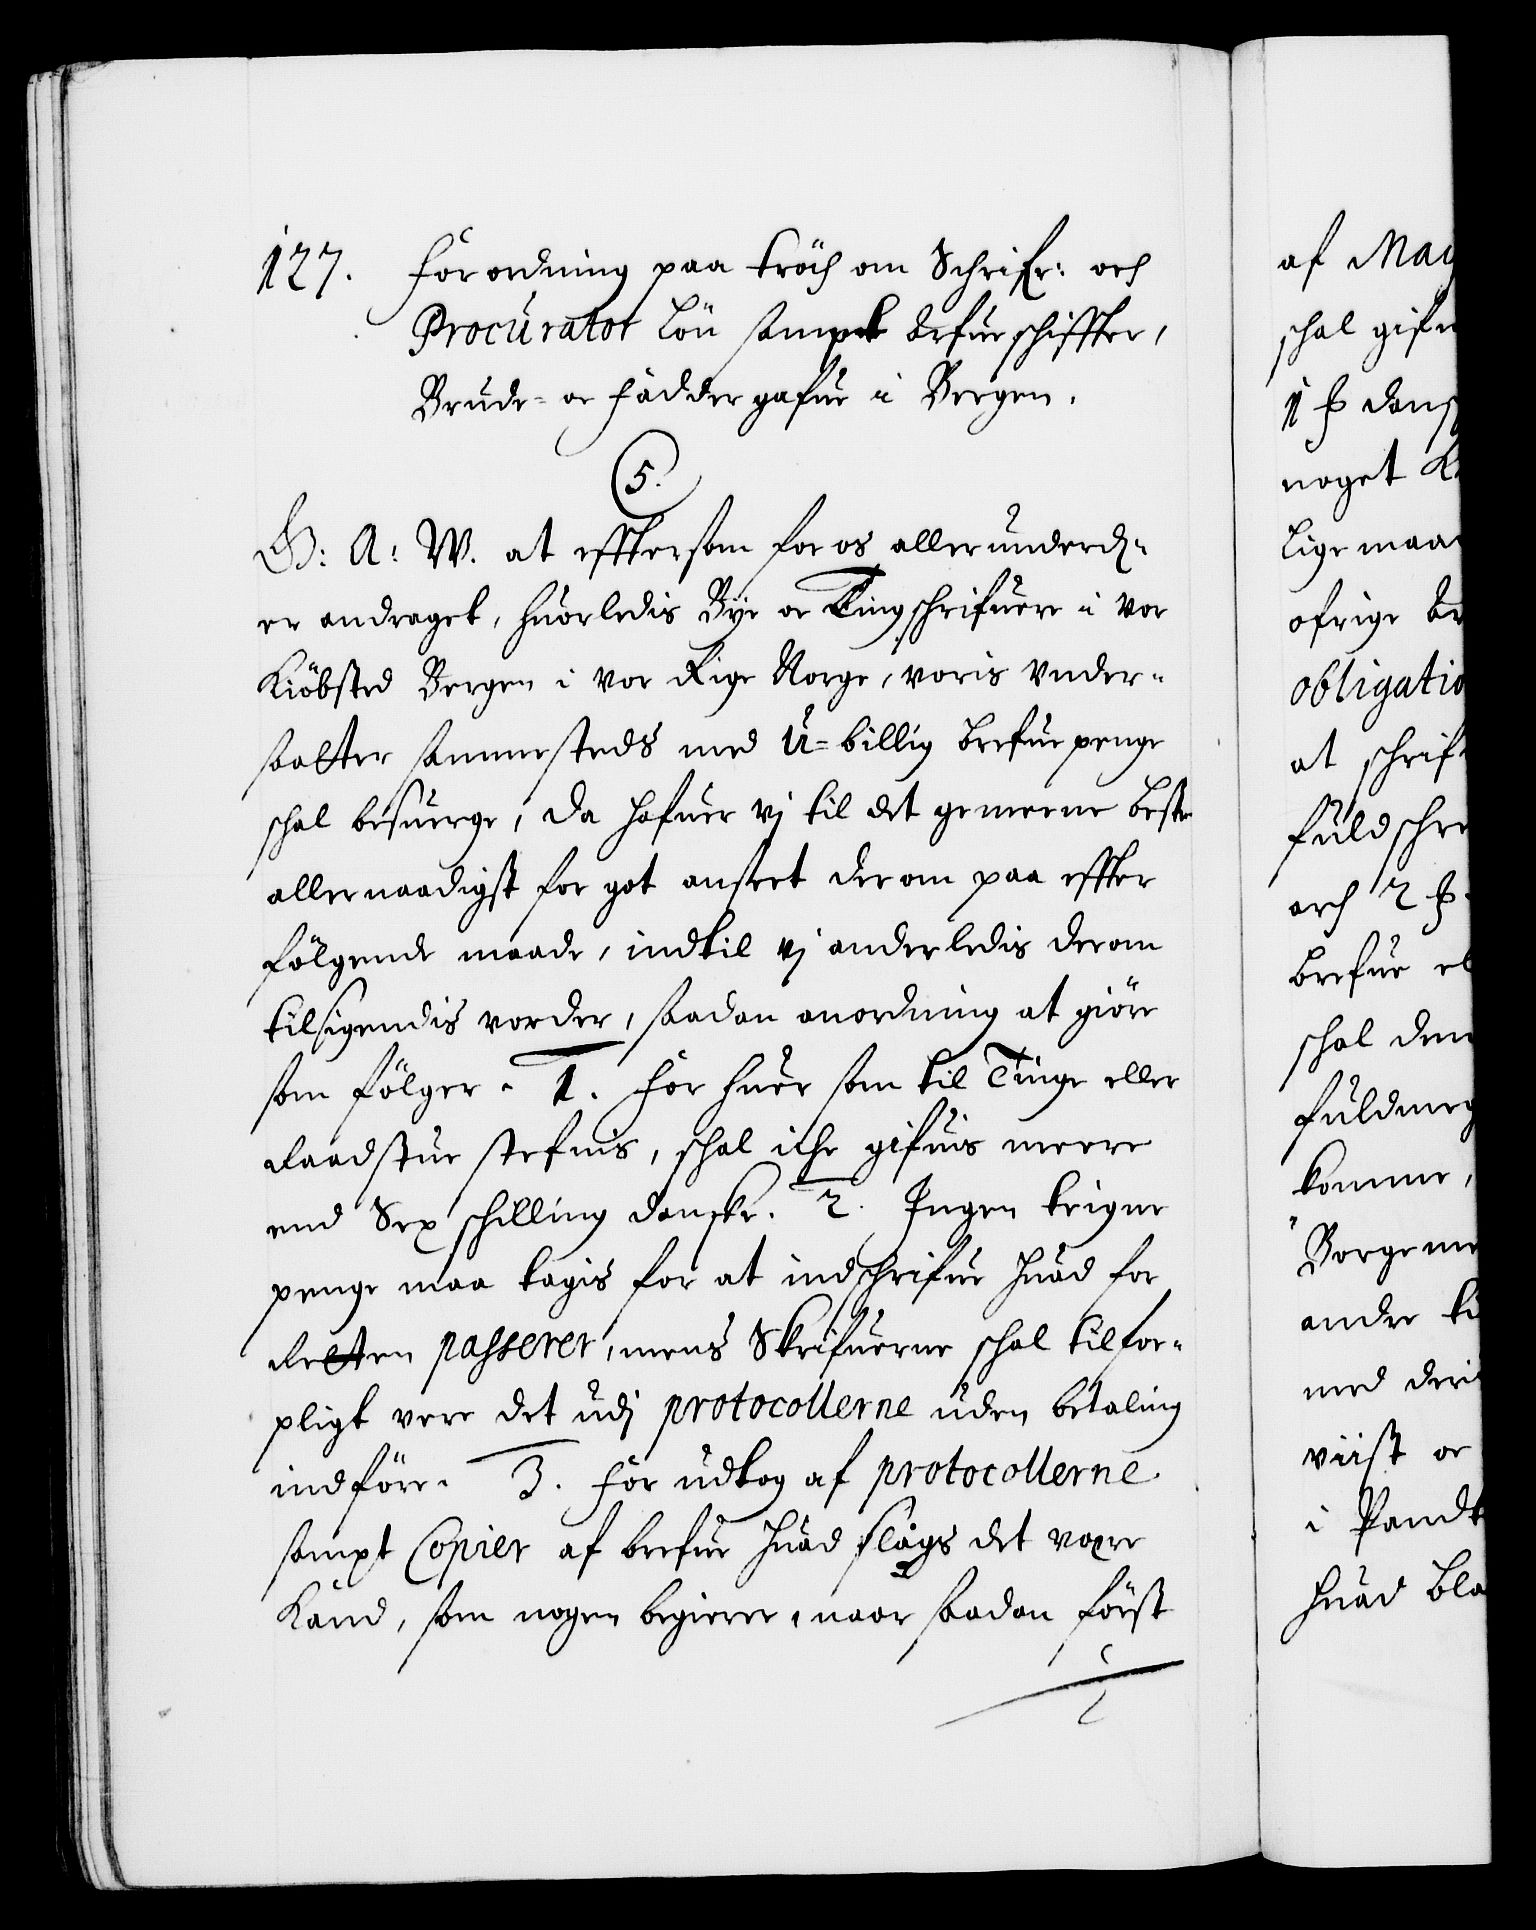 127. Forordning paa tröch om Schrifr: och
Procurator Lön sampt Arfueschiffter,
Brude- oc Faddergafue i Bergen.
5.
G: A: W. at effter som for os allerunderd-
er andraget, huorledis Bye oc Tingschrifuere i vor
Kiöbsted Bergen i vor Rige Norge, voris Vnder-
saatter sammesteds med U-billig brefue penge
schal besuerge, da hafuer vj til det gemeene beste
allernaadigst for got anseet derom paa effter
fölgende maade, indtil vj anderledis derom
tilsigendis vorder, saadan anordning at giöre
som fölger. 1. For huer som til Tinge eller
Raadstue stefnis, schal iche gifuis meere
end Sex schilling danske. 2. Ingen teigne
penge maa tagis for at indschrifue huad for
Retten passerer, mens Skrifuerne schal tilfor-
pligt vere det udj protocollerne uden betaling
indföre. 3. For udtog af protocollerne
sampt Copier af brefue huad slags det vœre
Kand, som nogen begierer, naar saadan först
af
schal
1 ß
noget
Lige maa
ofrige
obligatio
at schrif
fuldschre
och 2 ß
brefue
schal
fuldmeg
komme,
Borgeme
andre
med
viist oc
i Pandt
huad